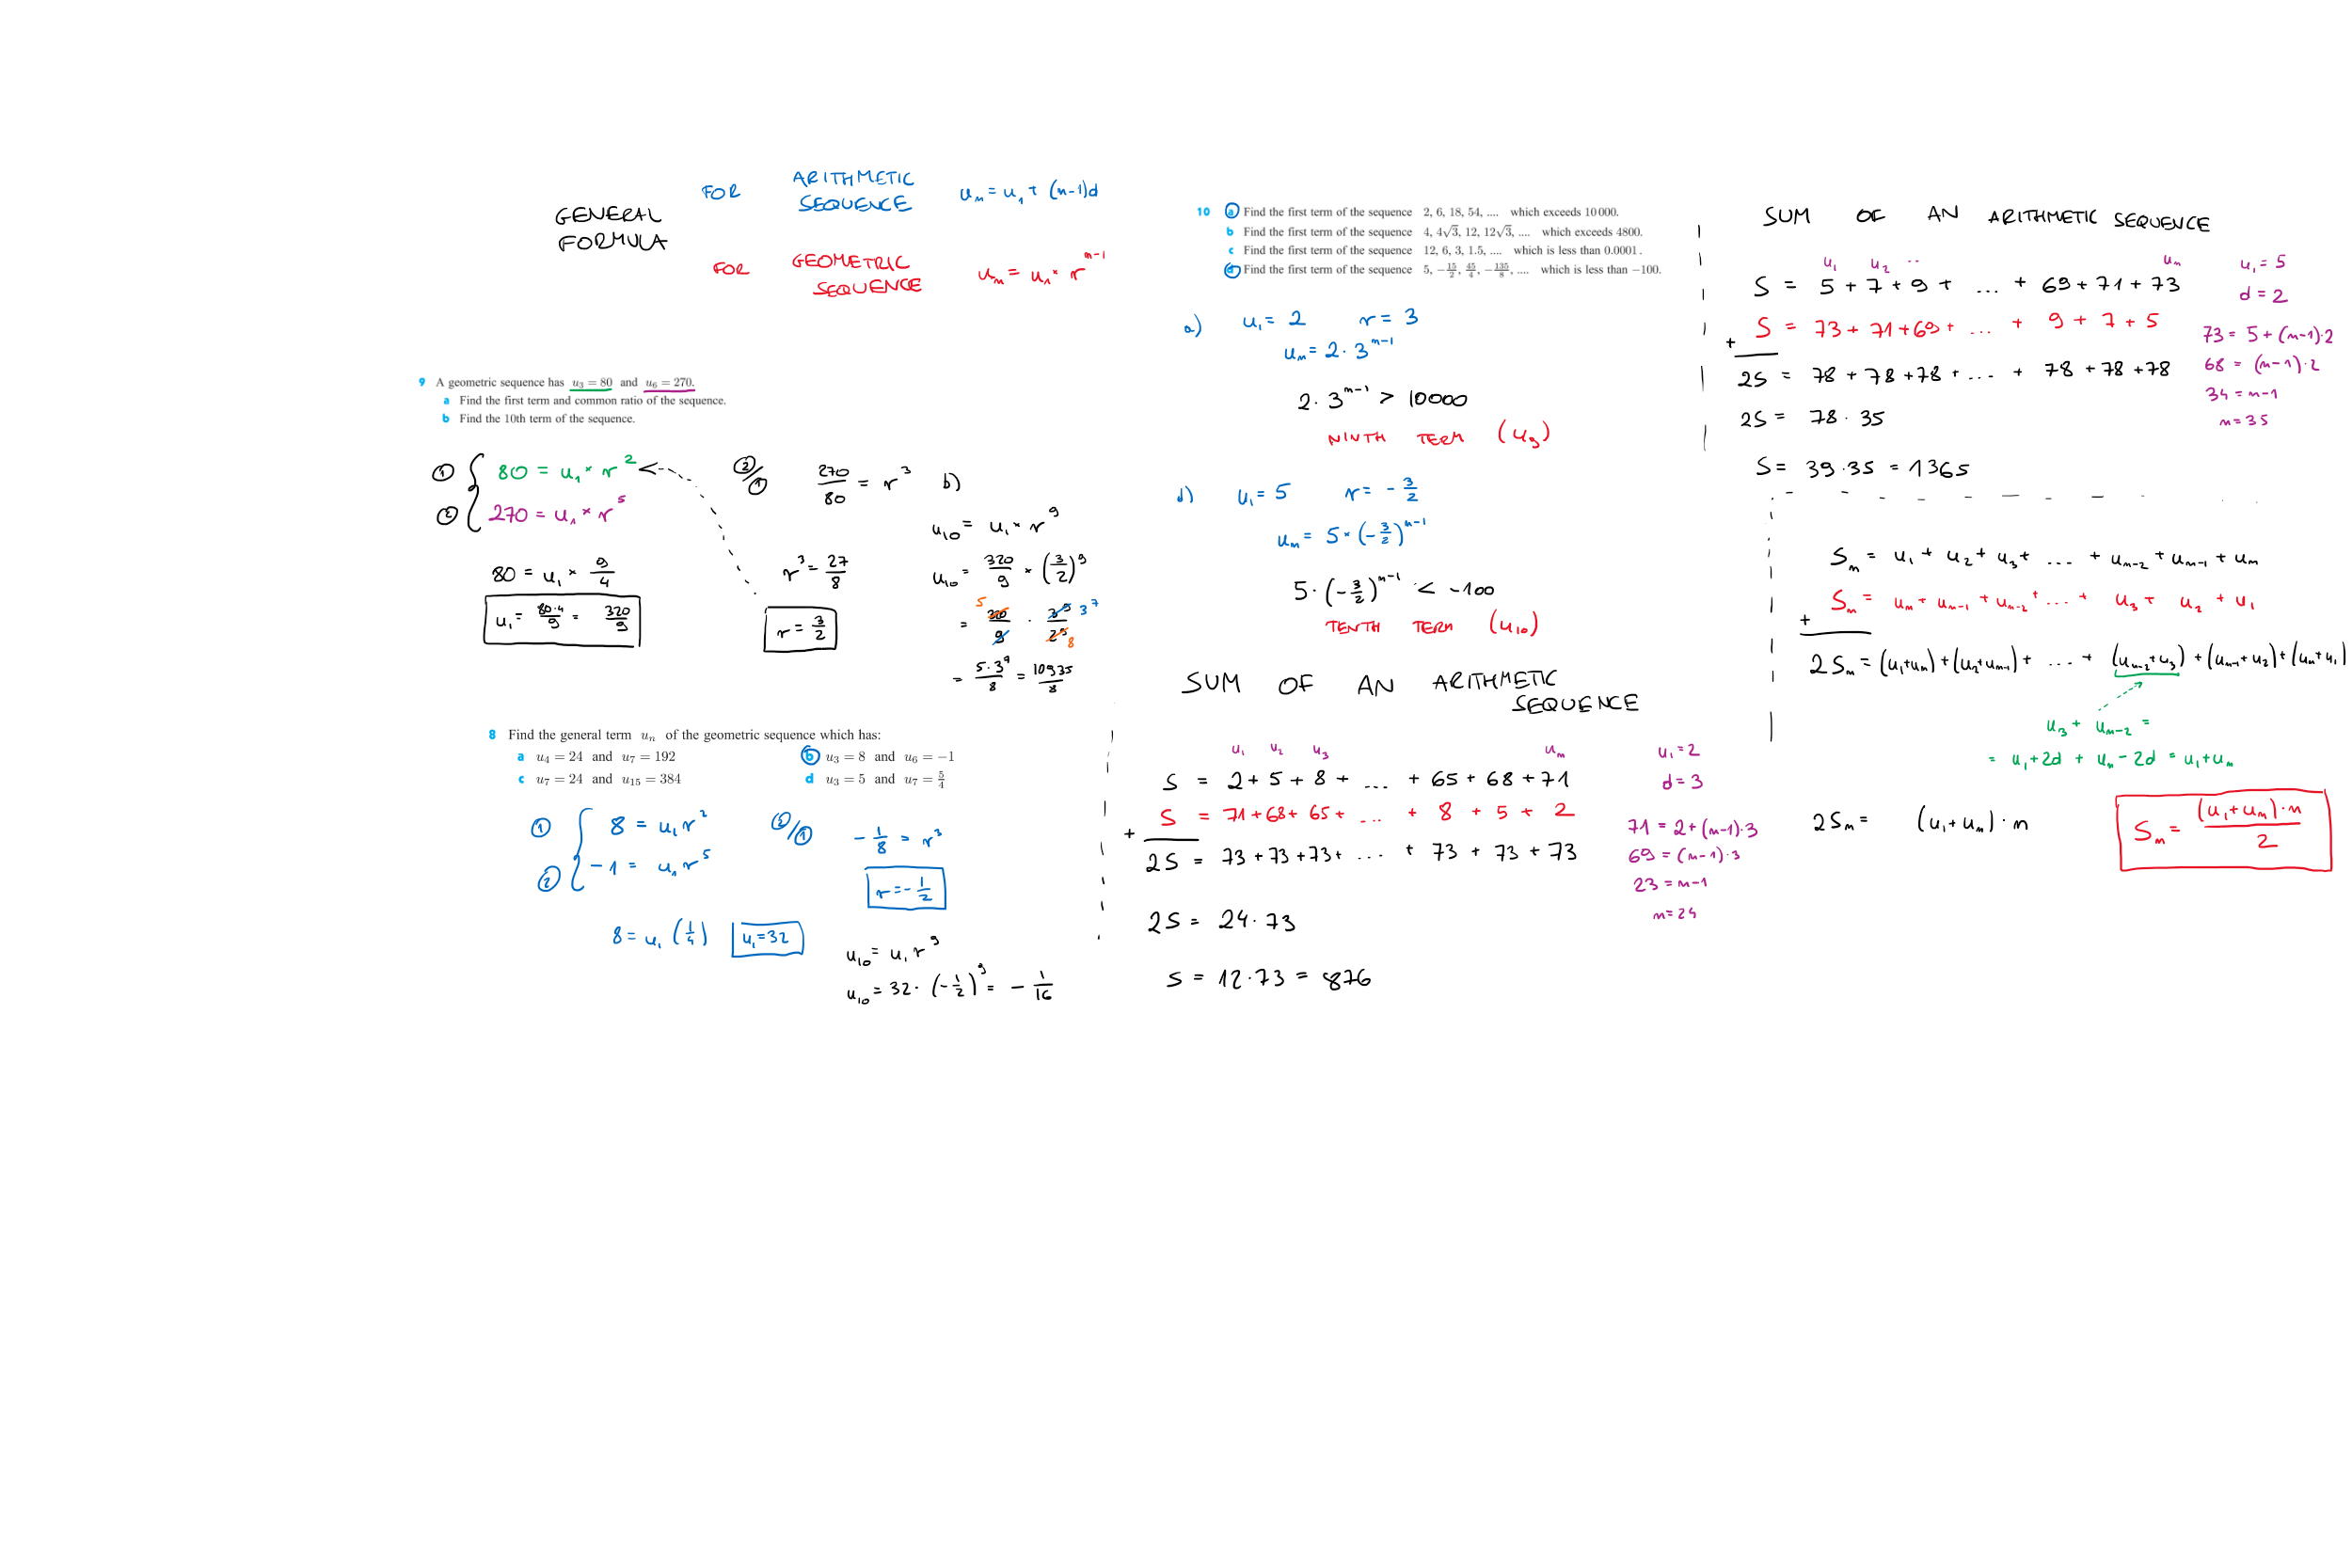 GENERAL FORMULA
FOR ARITHMETIC SEQUENCE uₙ = u₁ + (n-1)d
FOR GEOMETRIC SEQUENCE uₙ = u₁ × r^(n-1)
9 A geometric sequence has u₃ = 80 and u₆ = 270.
a Find the first term and common ratio of the sequence.
b Find the 10th term of the sequence.
① { 80 = u₁ × r²
② 270 = u₁ × r⁵
②/① 270/80 = r³
r³ = 27/8
r = 3/2
80 = u₁ × 9/4
u₁ = 80·4/9 = 320/9
b)
u₁₀ = u₁ × r⁹
u₁₀ = 320/9 × (3/2)⁹
= 320/9 · 3⁹/2⁹ 5 3⁷ 8
= 5·3⁷/8 = 10935/8
8 Find the general term uₙ of the geometric sequence which has:
a u₄ = 24 and u₇ = 192
b u₃ = 8 and u₆ = −1
c u₇ = 24 and u₁₅ = 384
d u₃ = 5 and u₇ = 5/4
① { 8 = u₁r²
② -1 = u₁r⁵
②/① -1/8 = r³
r = -1/2
8 = u₁ (1/4) u₁ = 32
u₁₀ = u₁ r⁹
u₁₀ = 32 · (-1/2)⁹ = - 1/16
10 a Find the first term of the sequence 2, 6, 18, 54, .... which exceeds 10 000.
b Find the first term of the sequence 4, 4√3, 12, 12√3, .... which exceeds 4800.
c Find the first term of the sequence 12, 6, 3, 1.5, .... which is less than 0.0001.
d Find the first term of the sequence 5, −15/2, 45/4, −135/8, .... which is less than −100.
a) u₁ = 2 r = 3
uₙ = 2 · 3^(n-1)
2 · 3^(n-1) > 10000
NINTH TERM (u₉)
d) u₁ = 5 r = -3/2
uₙ = 5 × (-3/2)^(n-1)
5 · (-3/2)^(n-1) < -100
TENTH TERM (u₁₀)
SUM OF AN ARITHMETIC SEQUENCE
u₁ u₂ u₃ uₙ u₁ = 2
S = 2 + 5 + 8 + ... + 65 + 68 + 71 d = 3
S = 71 + 68 + 65 + ... + 8 + 5 + 2
+
2S = 73 + 73 + 73 + ... + 73 + 73 + 73
71 = 2 + (n-1)·3
69 = (n-1)·3
23 = n-1
n = 24
2S = 24 · 73
S = 12 · 73 = 876
SUM OF AN ARITHMETIC SEQUENCE
u₁ u₂ .. uₙ u₁ = 5
S = 5 + 7 + 9 + ... + 69 + 71 + 73 d = 2
S = 73 + 71 + 69 + ... + 9 + 7 + 5
+
2S = 78 + 78 + 78 + ... + 78 + 78 + 78
73 = 5 + (n-1)·2
68 = (n-1)·2
34 = n-1
n = 35
2S = 78 · 35
S = 39 · 35 = 1365
Sₙ = u₁ + u₂ + u₃ + ... + uₙ₋₂ + uₙ₋₁ + uₙ
Sₙ = uₙ + uₙ₋₁ + uₙ₋₂ + ... + u₃ + u₂ + u₁
+
2Sₙ = (u₁+uₙ) + (u₂+uₙ₋₁) + ... + (uₙ₋₂+u₃) + (uₙ₋₁+u₂) + (uₙ+u₁)
u₃ + uₙ₋₂ =
= u₁+2d + uₙ-2d = u₁+uₙ
2Sₙ = (u₁+uₙ) · n
Sₙ = (u₁+uₙ)·n / 2